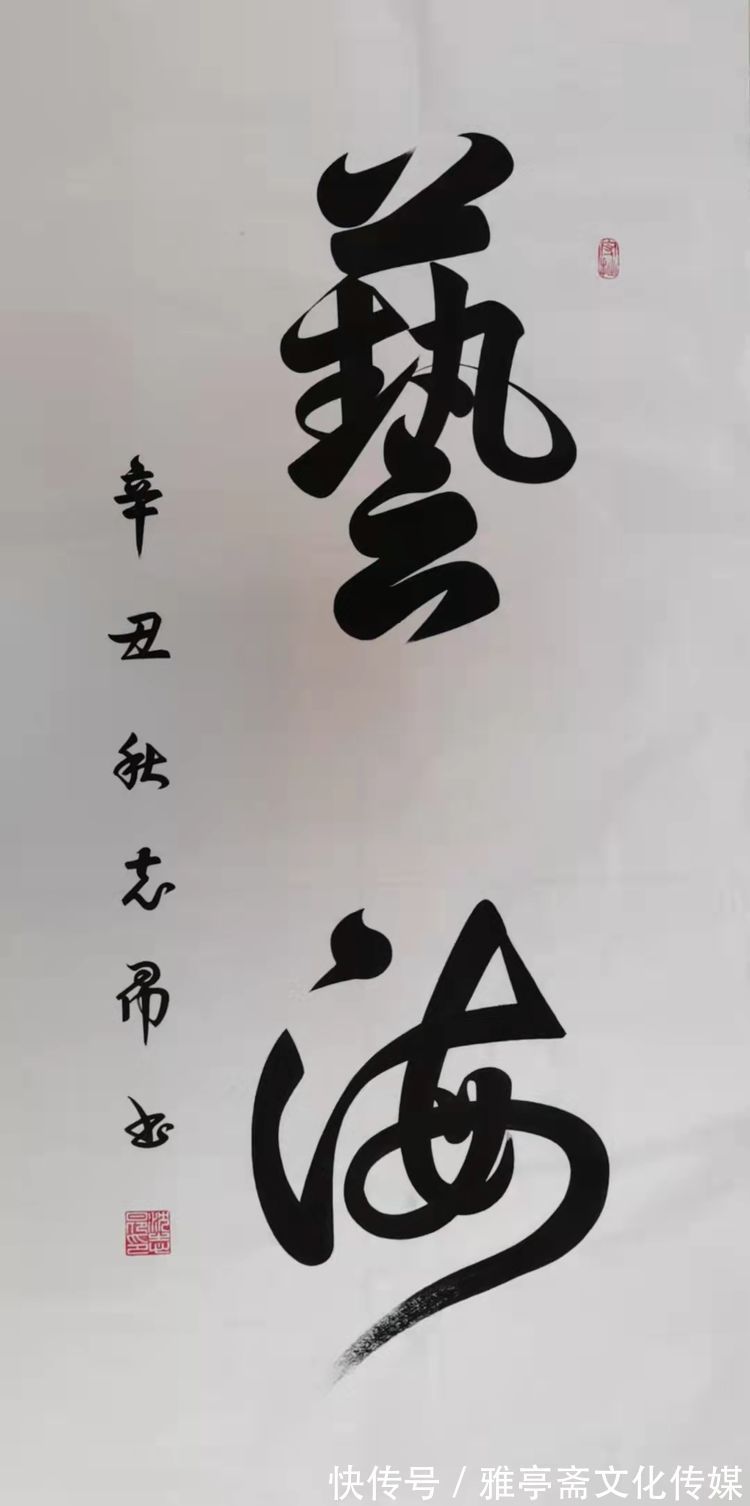 藝海
辛丑秋志昂书
快传号 / 雅亭斋文化传媒